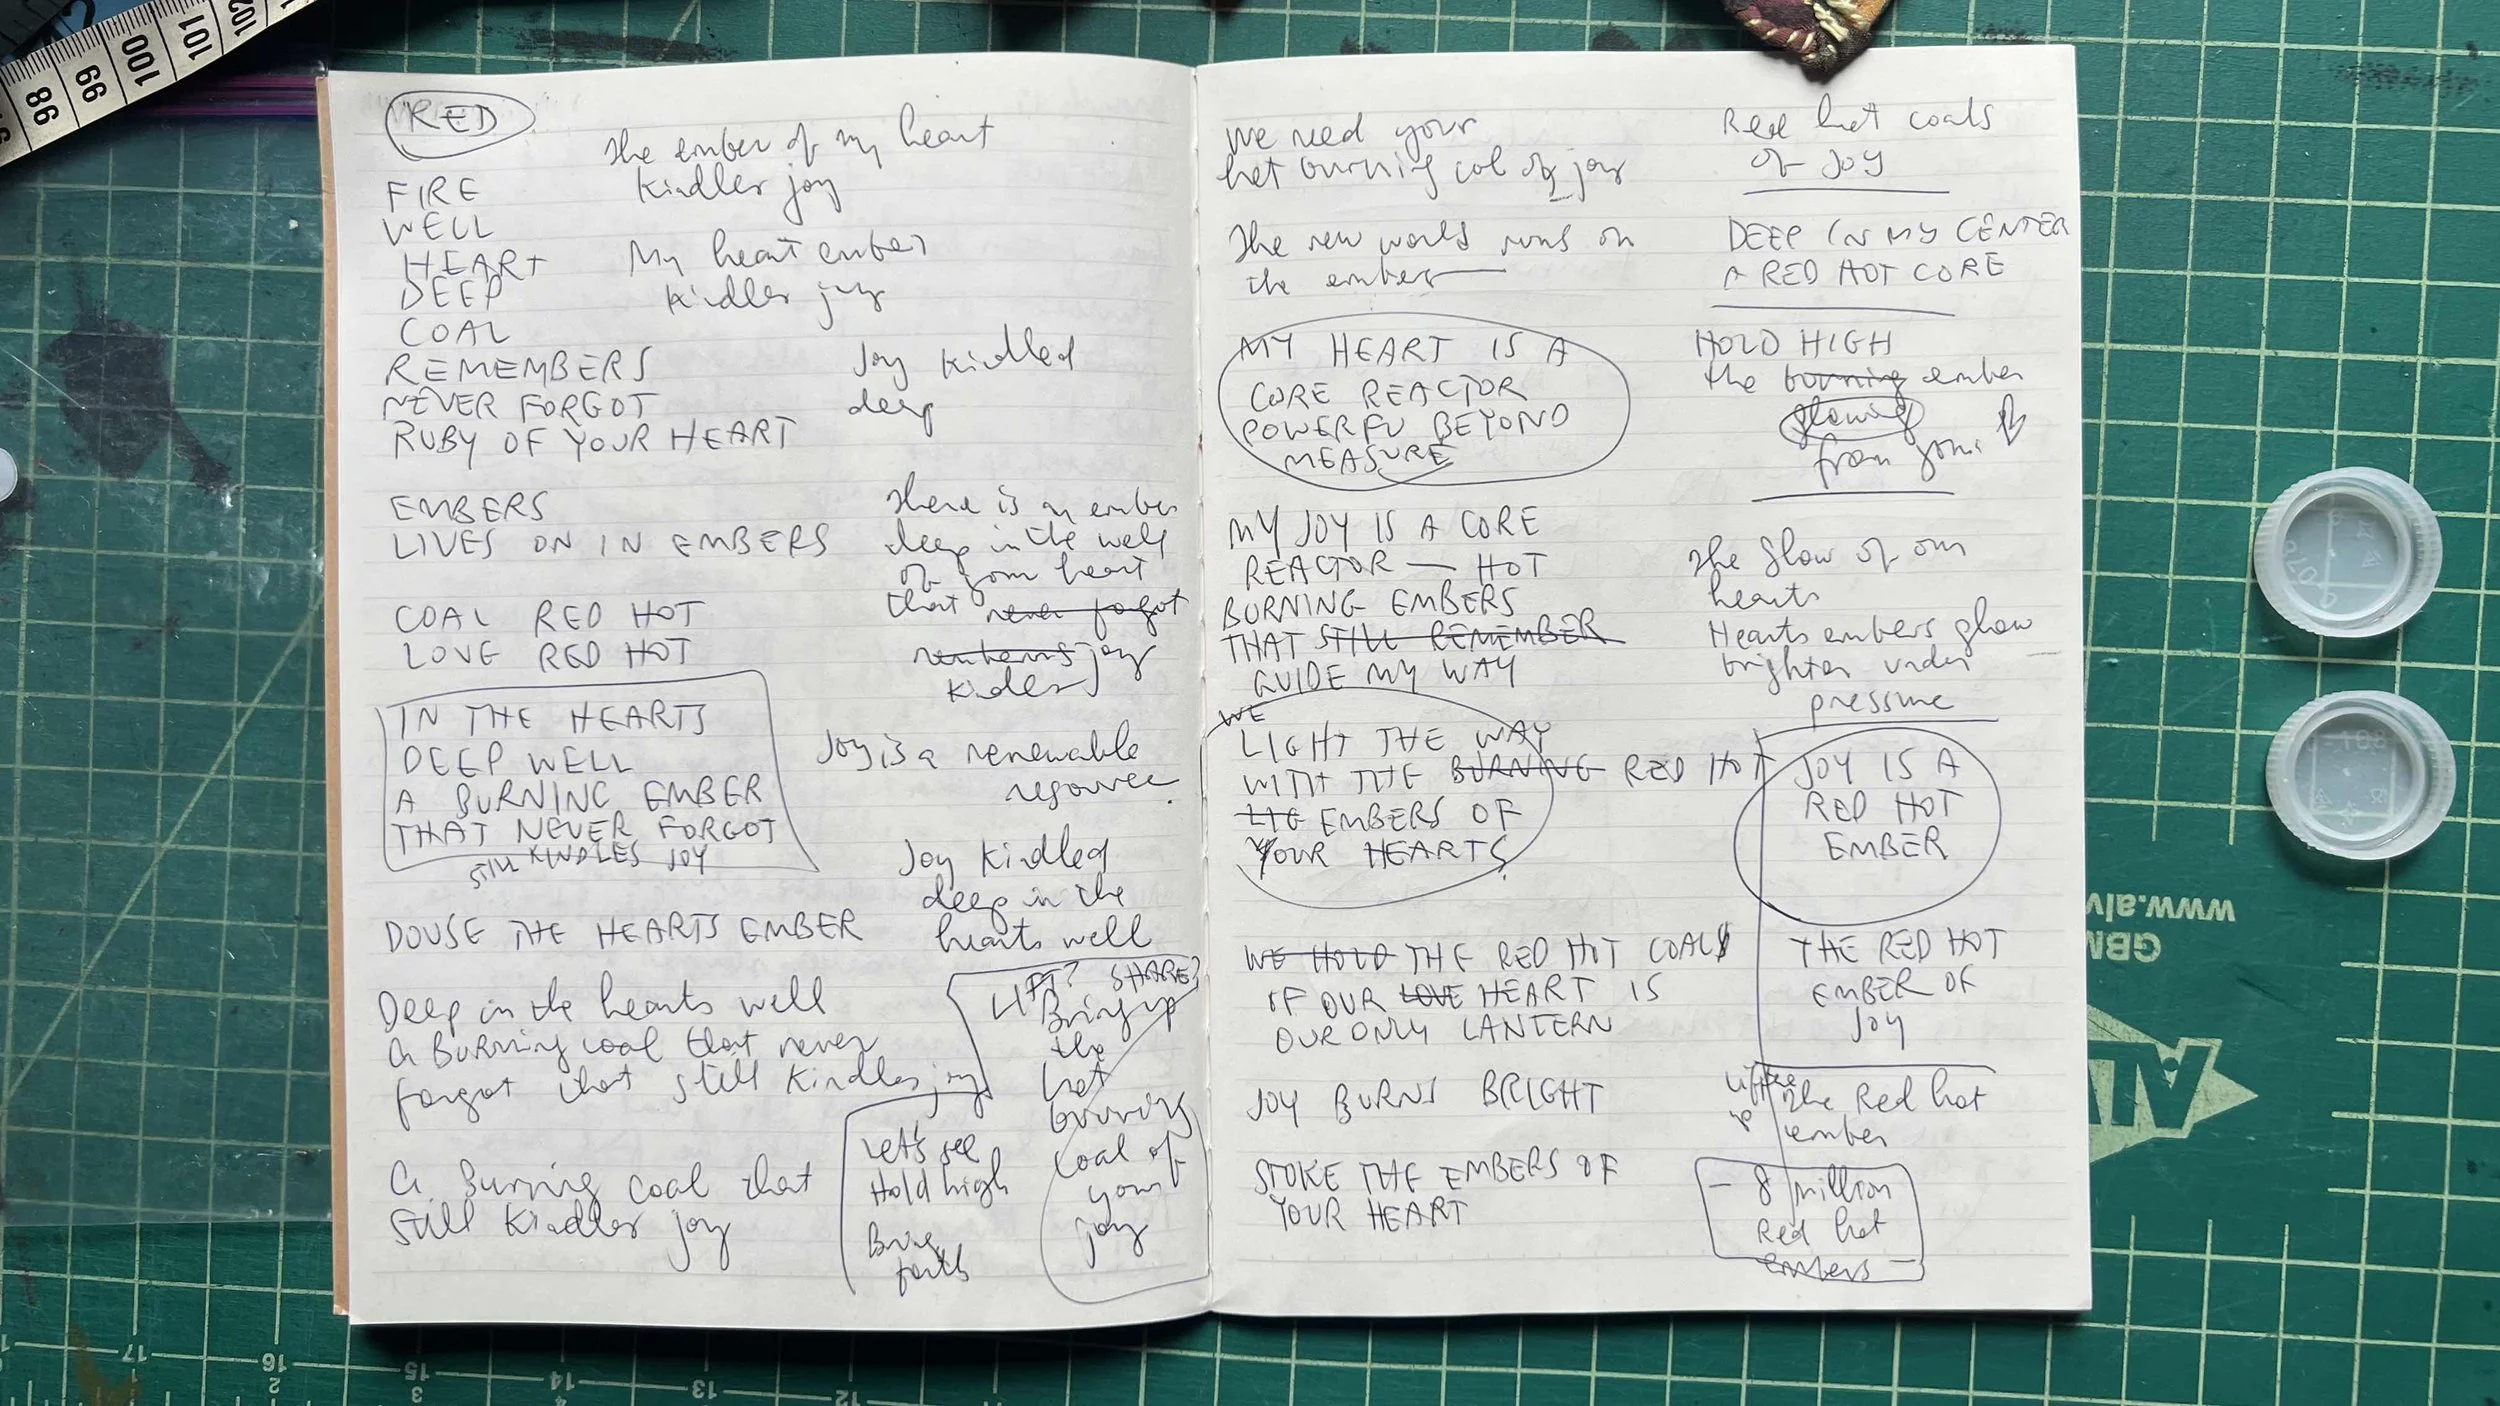 RED
FIRE
WELL
HEART
DEEP
COAL
REMEMBERS
NEVER FORGOT
RUBY OF YOUR HEART
EMBERS
LIVES ON IN EMBERS
COAL RED HOT
LOVE RED HOT
IN THE HEARTS
DEEP WELL
A BURNING EMBER
THAT NEVER FORGOT
STILL KINDLES JOY
DOUSE THE HEARTS EMBER
Deep in the hearts well
a Burning coal that never
forgot that still kindles joy
a Burning coal that
still kindles joy
the ember of my heart
kindles joy
My heart ember
kindles joy
Joy kindled
deep
there is an ember
deep in the well
of your heart
that never forgot
joy
kindles
Joy is a renewable
resource.
Joy kindled
deep in the
hearts well
LIFT? SHARE?
Bring up
the
hot
burning
coal of
your
joy
Let's see
Hold high
Bring
forth
We need your
hot burning col of joy
the new world runs on
the ember
MY HEART IS A
CORE REACTOR
POWERFU BEYOND
MEASURE
MY JOY IS A CORE
REACTOR — HOT
BURNING EMBERS
THAT STILL REMEMBER
GUIDE MY WAY
WE
LIGHT THE WAY
WITH THE BURNING RED HOT
EMBERS OF
YOUR HEARTS
WE HOLD THE RED HOT COALS
OF OUR LOVE HEART IS
OUR ONLY LANTERN
JOY BURNS BRIGHT
STOKE THE EMBERS OF
YOUR HEART
Red hot coals
of JOY
DEEP IN MY CENTER
A RED HOT CORE
HOLD HIGH
the burning ember
glowing
from your
the glow of our
hearts
Hearts embers glow
brighter under
pressure
JOY IS A
RED HOT
EMBER
THE RED HOT
EMBER OF
JOY
the Red hot
ember
- 8 million
Red hot
embers -
98
99
100
101
102
www.alv
GBM
ALV
17
16
15
14
13
12
11
2
3
4